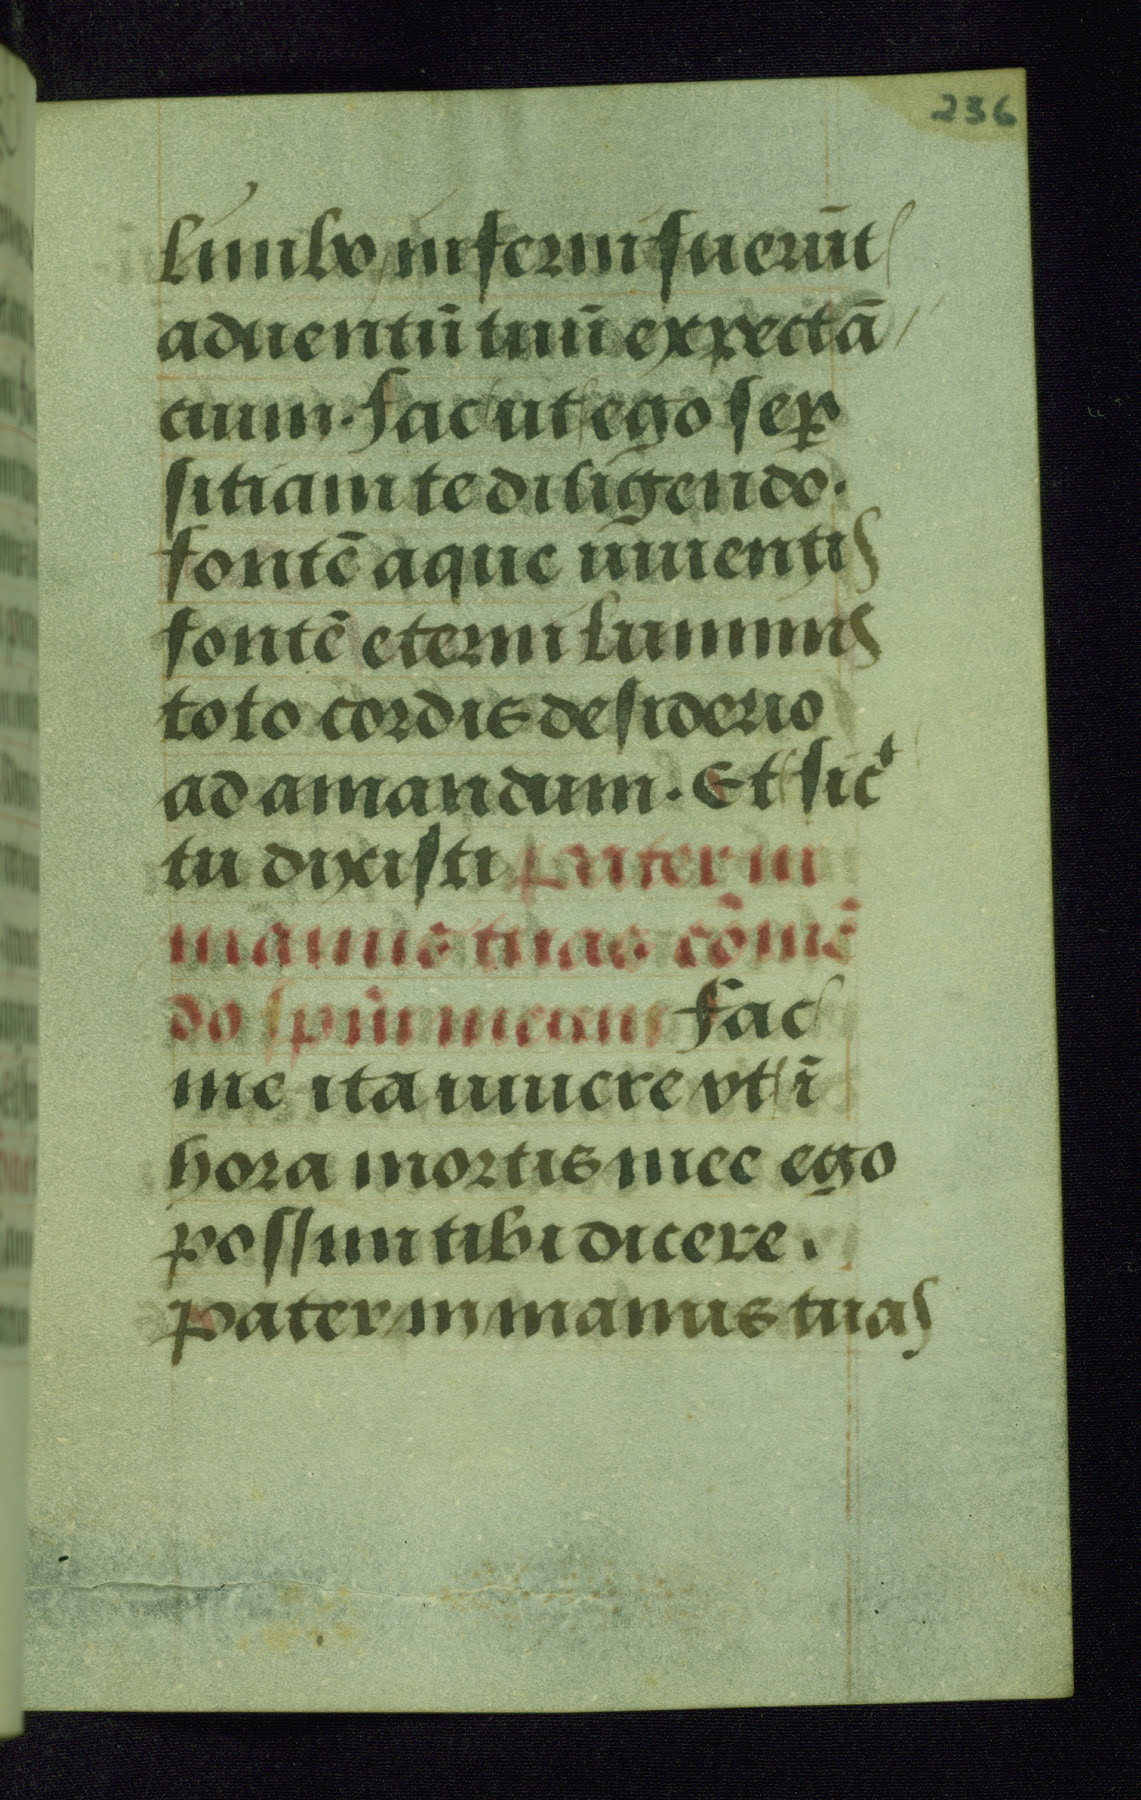 236
limbo inferni fuerūt
aduentū tuū expectā
cium. fac ut ego sep̄
sitiam te diligendo.
fontē aque uiuentis
fontē eterni luminis
toto cordis desiderio
ad amandum. Et sicᵗ
tu dixisti pater in
manus tuas cōmē
do sp̄m meum fac
me ita uiuere vt ī
hora mortis mee ego
possim tibi dicere.
pater in manus tuas